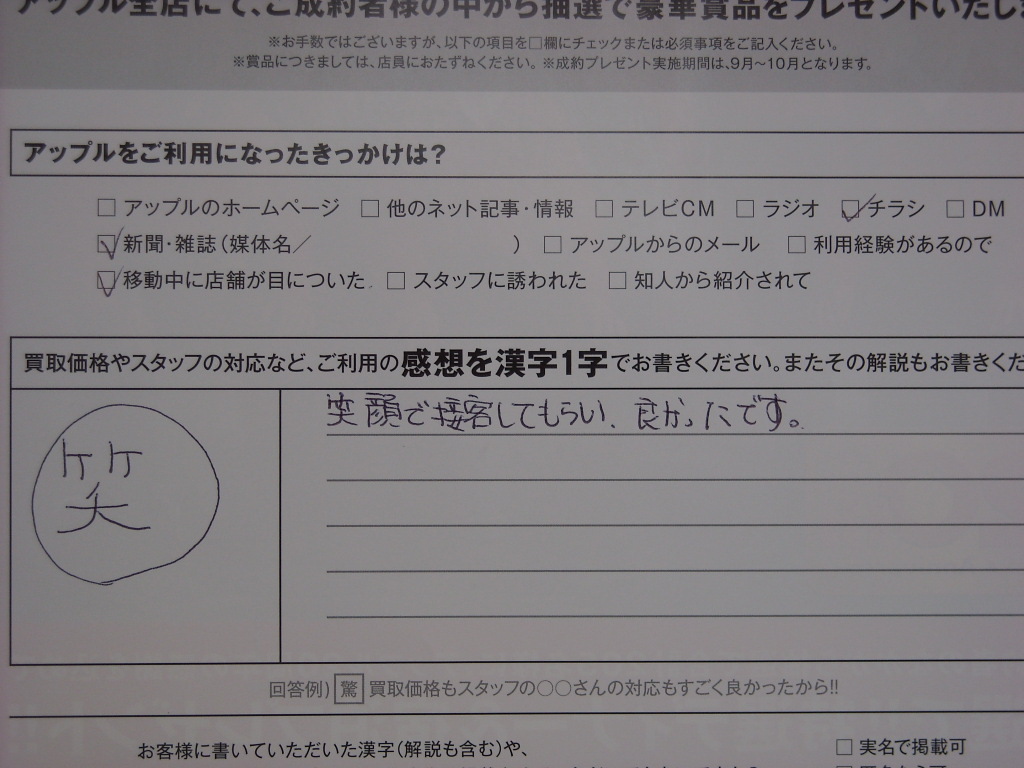 アップル全店にて、ご成約者様の中から抽選で豪華賞品をプレゼントいたしま
※お手数ではございますが、以下の項目を□欄にチェックまたは必須事項をご記入ください。
※賞品につきましては、店員におたずねください。※成約プレゼント実施期間は、9月～10月となります。
アップルをご利用になったきっかけは？
□ アップルのホームページ □ 他のネット記事・情報 □ テレビCM □ ラジオ ☑ チラシ □ DM
☑ 新聞・雑誌（媒体名／ ） □ アップルからのメール □ 利用経験があるので
☑ 移動中に店舗が目についた □ スタッフに誘われた □ 知人から紹介されて
買取価格やスタッフの対応など、ご利用の感想を漢字1字でお書きください。またその解説もお書きくだ
笑顔で接客してもらい、良かったです。
笑
回答例）驚 買取価格もスタッフの○○さんの対応もすごく良かったから!!
お客様に書いていただいた漢字（解説も含む）や、
□ 実名で掲載可